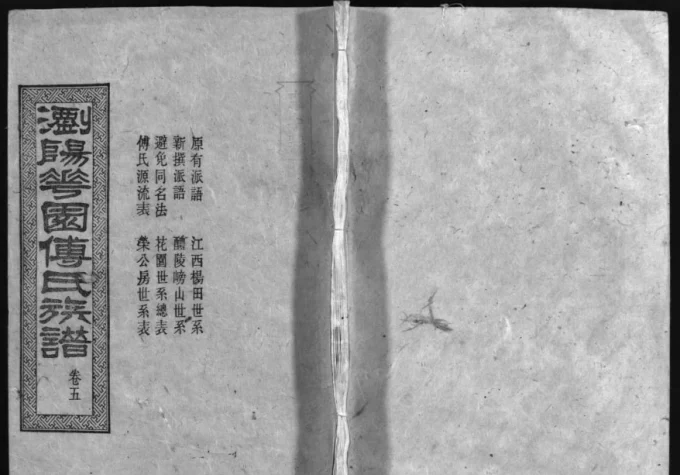 瀏陽花園傅氏族譜
卷五
原有派語 江西楊田世系
新撰派語 醴陵嶗山世系
避免同名法 花園世系總表
傅氏源流表 榮公房世系表